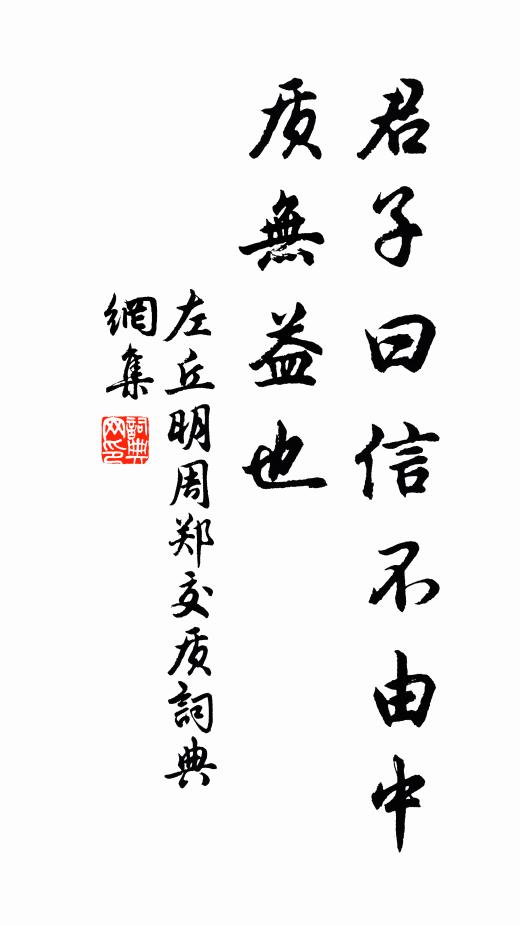 君子曰信不由中
质無益也
左丘明周郑交质詞典
網集
詞典
网印